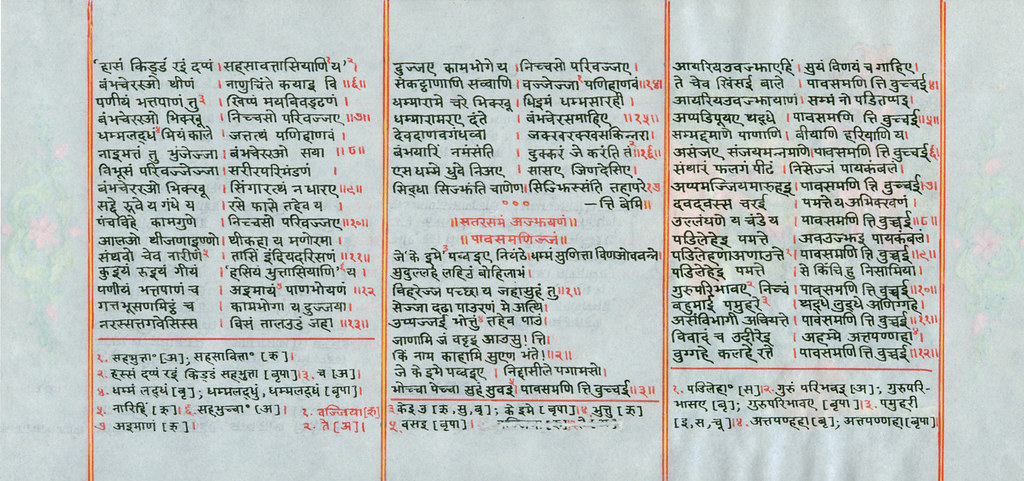 'हासं किड्डं रइं दप्पं । सहसावत्तासियाणि १ य' २ ।
बंभचेररओ थीणं । नाणुचिंते कयाइ वि ॥६॥
पणीयं भत्तपाणं तु ३ । खिप्पं मयविवड्ढणं ।
बंभचेररओ भिक्खू । निच्चसो परिवज्जए ॥७॥
धम्मलद्धं ४ मियं काले । जत्तत्थं पणिहाणवं ।
नाइमत्तं तु भुंजेज्जा । बंभचेररओ सया ॥८॥
विभूसं परिवज्जेज्जा । सरीरपरिमंडणं ।
बंभचेररओ भिक्खू । सिंगारत्थं न धारए ॥९॥
सद्दे रूवे य गंधे य । रसे फासे तहेव य ।
पंचविहे कामगुणे । निच्चसो परिवज्जए ॥१०॥
आलओ थीजणाइण्णो । थीकहा य मणोरमा ।
संथवो चेव नारीणं ५ । तासिं इंदियदरिसणं ॥११॥
कुइयं रुइयं गीयं । 'हसियं भुत्तासियाणि' ६ य ।
पणीयं भत्तपाणं च । अइमायं ७ पाणभोयणं ॥१२
गत्तभूसणमिट्ठं च । कामभोगा य दुज्जया ।
नरस्सत्तगवेसिस्स । विसं तालउडं जहा ॥१३॥
१. सहभुत्ता° [अ]; सहसावित्ता° [ऋ] ।
२. हस्सं दप्पं रइं किड्डं सहभुत्ता [बृपा] । ३. च [अ] ।
४. धम्मं लद्धुयं [बृ]; धम्मलद्धुं, धम्मलद्धयं [बृपा] ।
५. नारिहिं [ऋ] ६. सहभुच्चा° [अ] ।
७ अइमाणं [ऋ] ।
दुज्जए कामभोगे य । निच्चसो परिवज्जए ।
संकट्ठाणाणि सव्वाणि । वज्जेज्जा १ पणिहाणवं ॥१४॥
धम्मारामे चरे भिक्खू । धिइमं धम्मसारही ।
धम्मारामरए दंते । बंभचेरसमाहिए ॥१५॥
देवदाणवगंधव्वा । जक्खरक्खसकिन्नरा ।
बंभयारिं नमंसंति । दुक्करं जे करंति तं २ ॥१६॥
एस धम्मे धुवे निअए । सासए जिणदेसिए ।
सिद्धा सिज्झंति चाणेण । सिज्झिस्संति तहापरे १७
० ० ० — त्ति बेमि ॥
॥ सतरसमं अज्झयणं ॥
॥ पावसमणिज्जं ॥
जे 'के इमे' ३ पव्वइए नियंठे । धम्मं सुणित्ता विणओववन्ने ।
सुदुल्लहं लहिउं बोहिलाभं ।
विहरेज्ज पच्छा य जहासुहं तु ॥१॥
सेज्जा दढा पाउरणं मे अत्थि ।
उप्पज्जई भोत्तुं ४ तहेव पाउं ।
जाणामि जं वट्टइ आउसु! त्ति ।
किं नाम काहामि सुएण भंते! ॥२॥
जे के इमे पव्वइए । निद्दासीले पगामसो ।
भोच्चा पेच्चा सुहं सुवइ ५ । पावसमणि त्ति वुच्चई ॥३॥
१. वज्जिया [ऋ]
२. ते [अ] ।
३ केइ उ [ऋ, सु, बृ]; के इमे [बृपा] । ४. भुत्तु [ऋ]
५ वसइ [बृपा] ।
आयरियउवज्झाएहिं । सुयं विणयं च गाहिए ।
ते चेव खिंसई बाले । पावसमणि त्ति वुच्चई ४।
आयरियउवज्झायाणं । सम्मं नो पडितप्पइ ।
अप्पडिपूयए थद्धे । पावसमणि त्ति वुच्चई ॥५॥
सम्मद्दमाणे पाणाणि । बीयाणि हरियाणि य ।
असंजए संजयमन्नमाणे । पावसमणि त्ति वुच्चई ६।
संथारं फलगं पीढं । निसेज्जं पायकंबलं ।
अप्पमज्जियमारुहइ । पावसमणि त्ति वुच्चई ॥७।
दवदवस्स चरई । पमत्ते य अभिक्खणं ।
उल्लंघणे य चंडे य । पावसमणि त्ति वुच्चई ॥८॥
पडिलेहेइ पमत्ते । अवउज्झइ पायकंबलं ।
पडिलेहणाअणाउत्ते १ । पावसमणि त्ति वुच्चई ॥९॥
पडिलेहेइ पमत्ते । से किंचि हु निसामिया ।
गुरुपरिभावए २ निच्चं । पावसमणि त्ति वुच्चई ॥१०॥
बहुमाई पमुहरे ३ । थद्धे लुद्धे अणिग्गहे ।
असंविभागी अचियत्ते । पावसमणि त्ति वुच्चई ॥११॥
विवादं च उदीरेइ । अहम्मे अत्तपण्णहा ४ ।
वुग्गहे कलहे रत्ते । पावसमणि त्ति वुच्चई ॥१२॥
१. पडिलेहा° [स] । २. गुरुं परिभवइ [अ]; गुरुपरि-
भासए [बृ]; गुरुपरिभावए [बृपा] । ३. पमुहरी
[इ, स, चू] । ४. अत्तपण्हहा [बृ]; अत्तपण्णहा [बृपा]